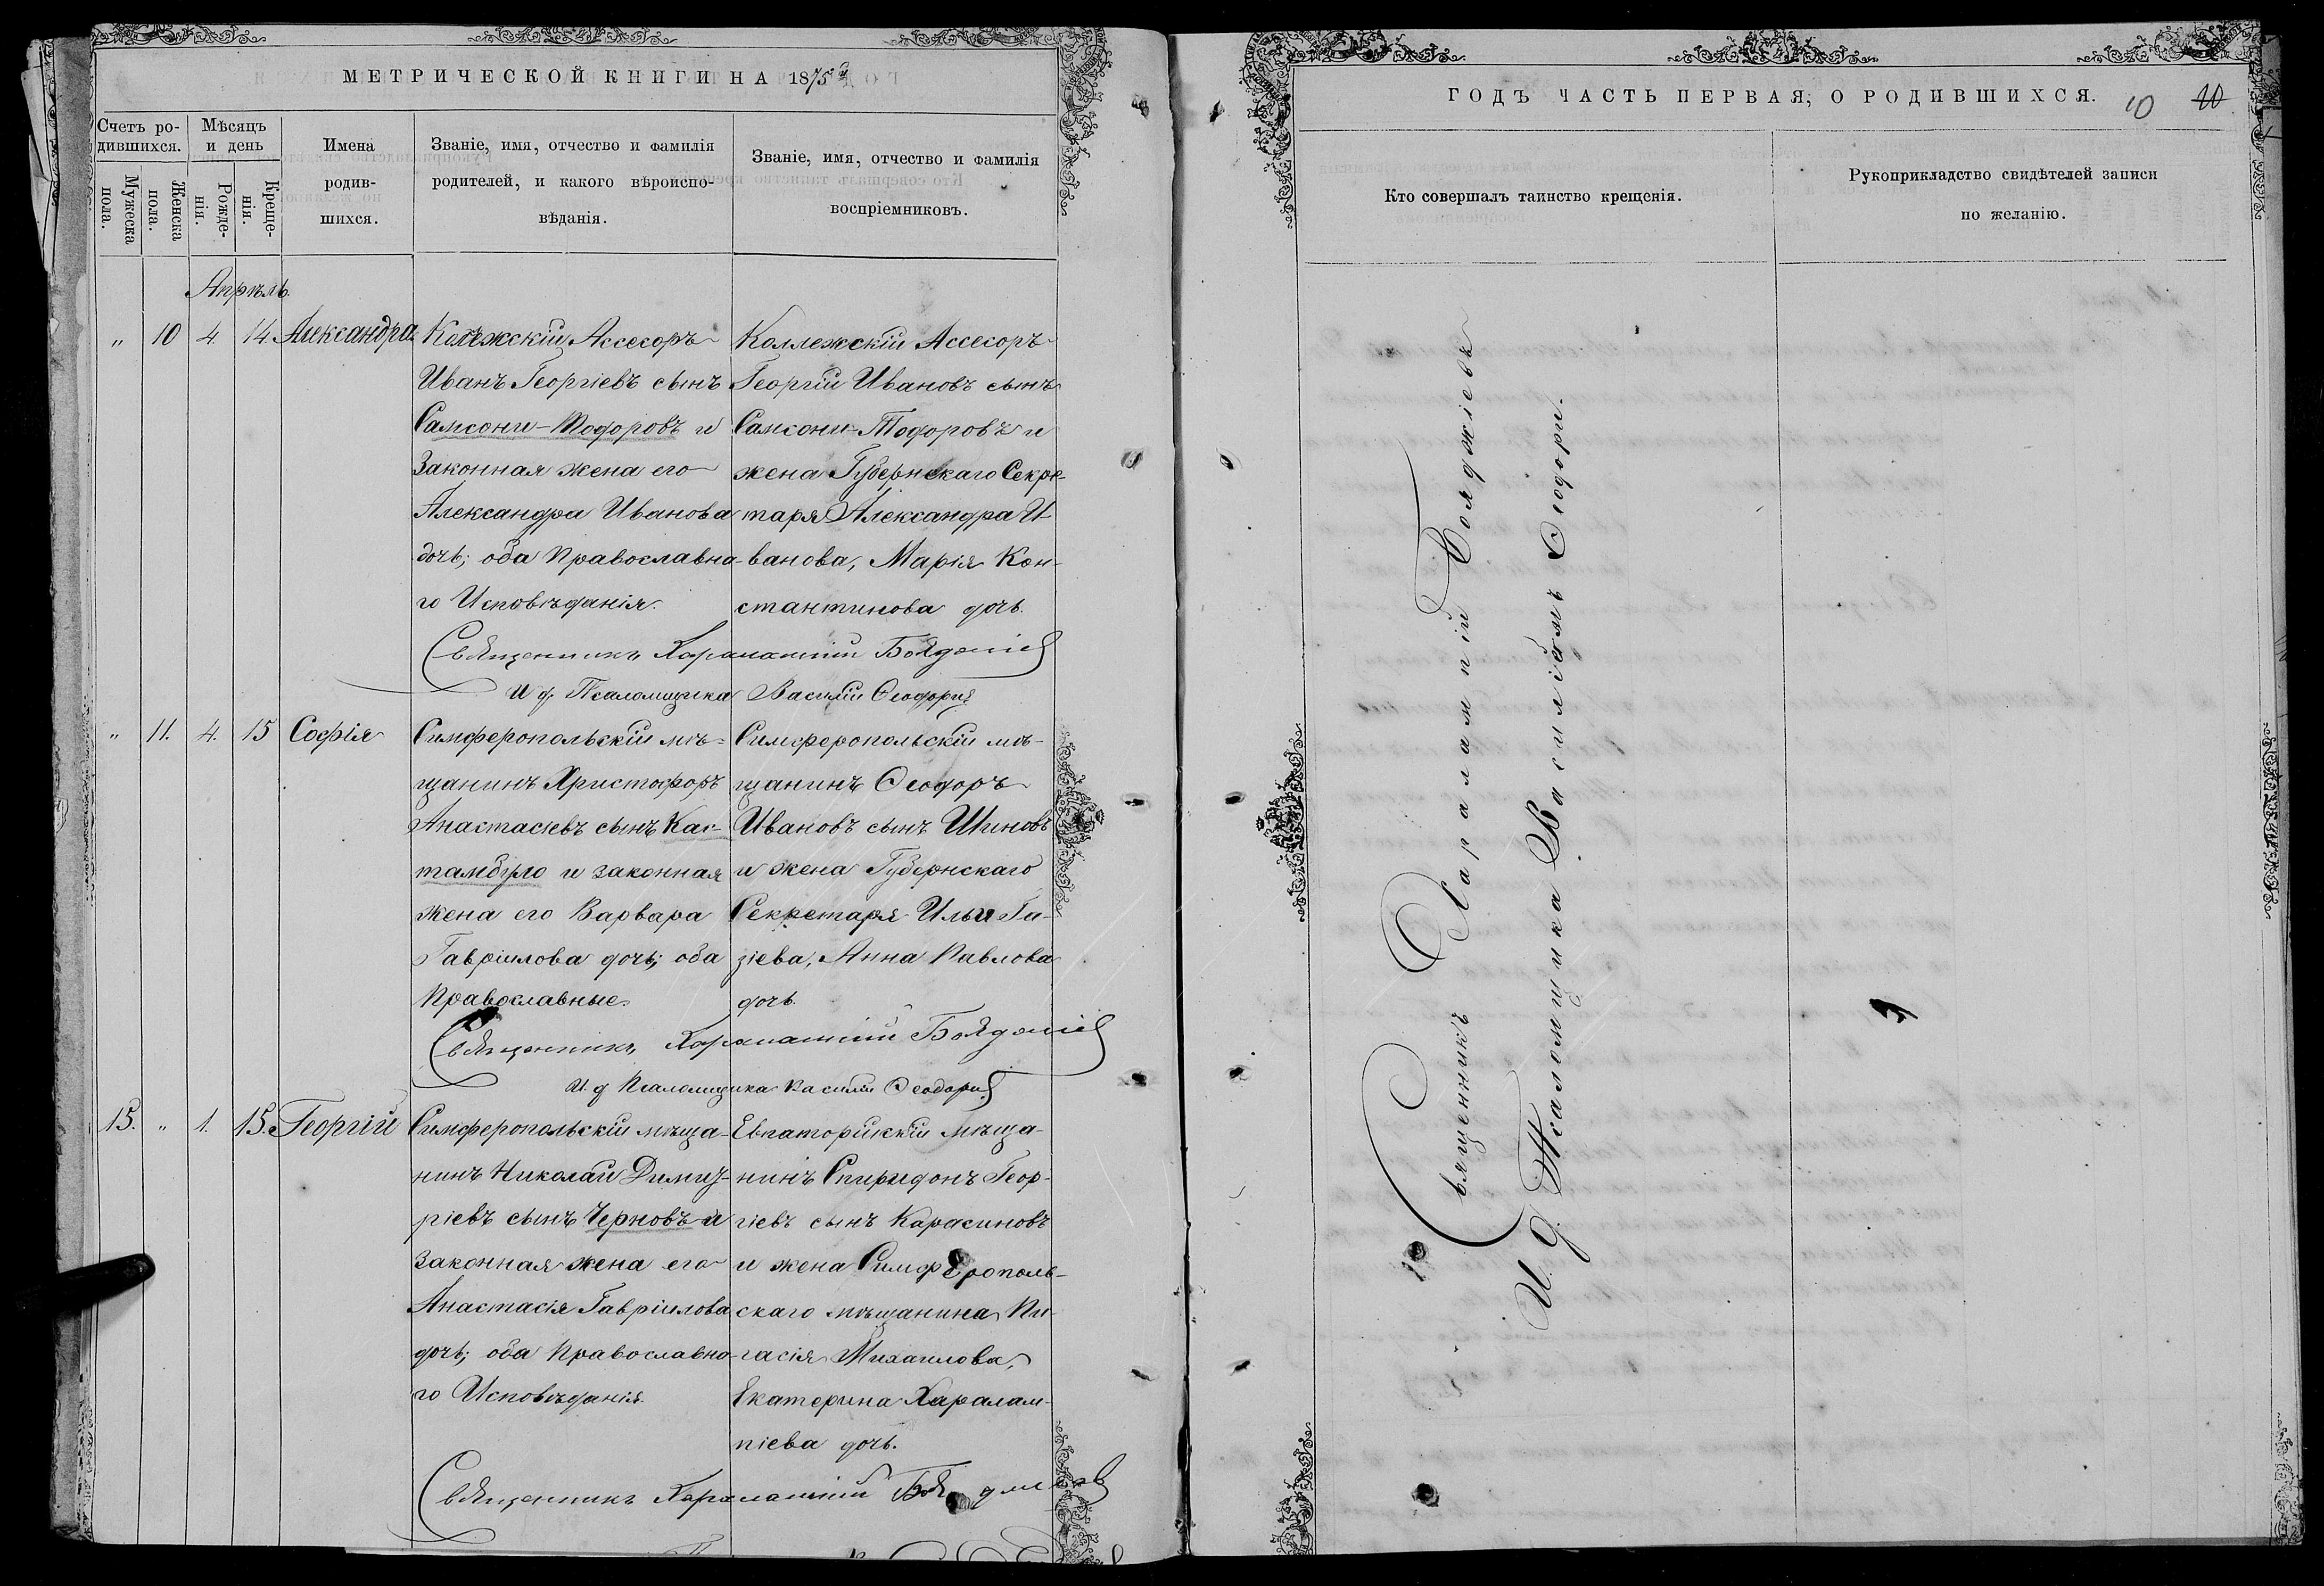 МЕТРИЧЕСКОЙ КНИГИ НА 1875й
Счетъ ро-
дившихся.
Мѣсяцъ
и день
Мужеска
пола.
Женска
пола.
Рожде-
нія.
Креще-
нія.
Имена
родив-
шихся.
Званіе, имя, отчество и фамилія
родителей, и какого вѣроиспо-
вѣданія.
Званіе, имя, отчество и фамилія
воспріемниковъ.
Апрѣль.
„ 10 4 14 Александра
Колежскій Ассесоръ
Иванъ Георгіевъ сынъ
Самсони-Тодоровъ и
законная жена его
Александра Иванова
дочь; оба Православна-
го Исповѣданія.
Коллежскій Ассесоръ
Георгій Ивановъ сынъ
Самсони-Тодоровъ и
жена Губернскаго Секре-
таря Александра И
ванова, Марія Кон-
стантинова дочь.
Священникъ Харалампій Бояджіевъ
И д. Псаломщика Василій Ѳеодори
„ 11. 4. 15 Софія
Симферопольскій мѣ-
щанинъ Христофоръ
Анастасіевъ сынъ Кас-
тамбуло и законная
жена его Варвара
Гавріилова дочь; оба
Православные.
Симферопольскій мѣ-
щанинъ Ѳеодоръ
Ивановъ сынъ Шиновъ
и жена Губернскаго
Секретаря Ильи Ги-
зіева, Анна Павлова
дочь.
Священникъ Харалампій Бояджіевъ
И. д Псаломщика Василій Ѳеодори
15. „ 1. 15. Георгій
Симферопольскій мѣща-
нинъ Николай Димит-
ріевъ сынъ Черновъ и
законная жена его
Анастасія Гавріилова
дочь; оба Православна-
го Исповѣданія.
Евпаторійскій мѣща-
нинъ Спиридонъ Геор-
гіевъ сынъ Карасиновъ
и жена Симферополь-
скаго мѣщанина Пи-
гасія Михаилова,
Екатерина Харалам-
піева дочь.
Священникъ Харалампій Бояджіевъ
ГОДЪ ЧАСТЬ ПЕРВАЯ, О РОДИВШИХСЯ.
10 20
Кто совершалъ таинство крещенія.
Рукоприкладство свидѣтелей записи
по желанію.
Священникъ Харалампій Бояджіевъ
И. д. Псаломщика Василій Ѳеодори.